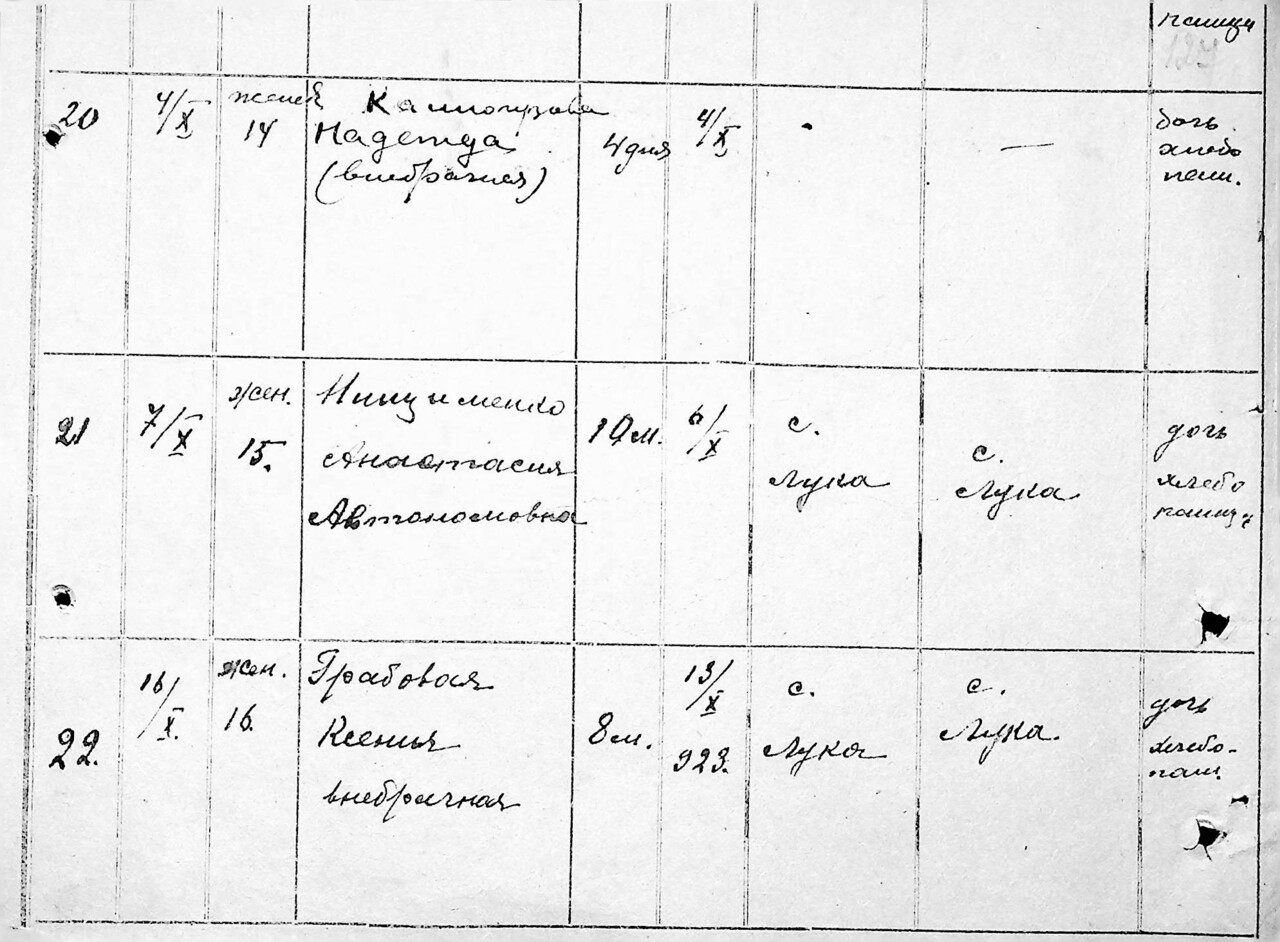 пашця
127
20
4/X
женск
14
Надежда
(внебрачная)
4 дня
4/X
—
дочь
хлебо
паш.
21
7/X
жен.
15.
Ницименко
Анастасия
Автономовна
10 м.
6/X
с.
Лука
с.
Лука
дочь
хлебо
пашця
22.
16/X.
жен.
16.
Грабовая
Ксенья
внебрачная
8 м.
13/X
923.
с.
Лука
с.
Лука.
дочь
хлебо-
паш.